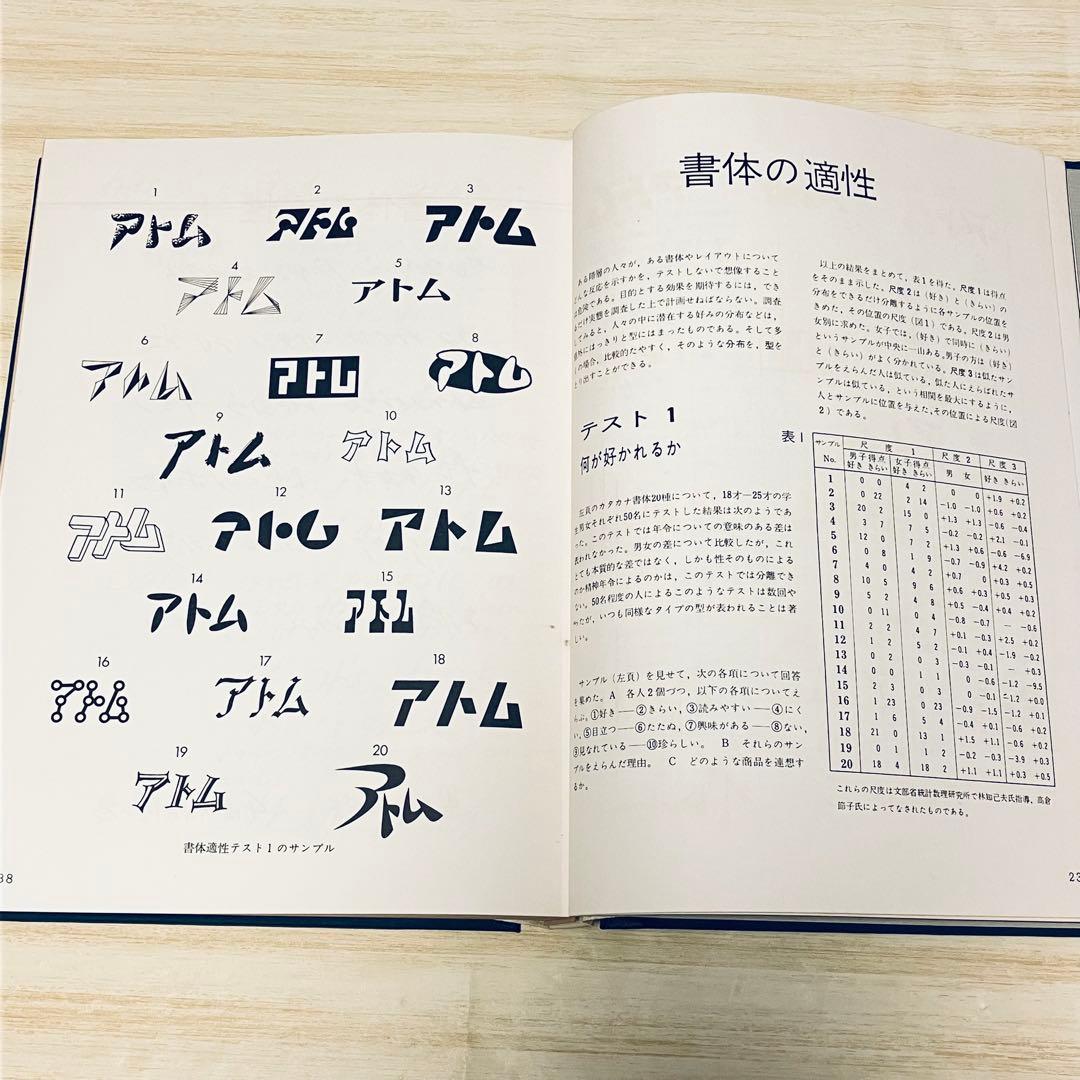 1
アトム
2
アトム
3
アトム
4
アトム
5
アトム
6
アトム
7
アトム
8
アトム
9
アトム
10
アトム
11
アトム
12
アトム
13
アトム
14
アトム
15
アトム
16
アトム
17
アトム
18
アトム
19
アトム
20
アトム
書体適性テスト1のサンプル
38
書体の適性
ある階層の人々が,ある書体やレイアウトについて
どんな反応を示すかを,テストしないで想像すること
は危険である。目的とする効果を期待するには,でき
るだけ実態を調査した上で計画せねばならない。調査
してみると,人々の中に潜在する好みの分布などは,
外にはっきりと型にはまったものである。そして多
の場合,比較的たやすく,そのような分布を,型を
とり出すことができる。
テスト1
何が好かれるか
左頁のカタカナ書体20種について,18才―25才の学
生男女それぞれ50名にテストした結果は次のようであ
った。このテストでは年令についての意味のある差は
表われなかった。男女の差について比較したが,これ
とても本質的な差ではなく,しかも性そのものによる
のか精神年令によるのかは,このテストでは分離でき
ない。50名程度の人によるこのようなテストは数回や
ったが,いつも同様なタイプの型が表われることは著
しい。
サンプル(左頁)を見せて,次の各項について回答
を集めた。A 各人2個づつ,以下の各項についてえ
らぶ。①好き――②きらい,③読みやすい――④にく
い,⑤目立つ――⑥たたぬ,⑦興味がある――⑧ない,
⑨見なれている――⑩珍らしい。 B それらのサン
プルをえらんだ理由。 C どのような商品を連想す
るか。
以上の結果をまとめて,表1を得た。尺度1は得点
をそのまま示した。尺度2は(好き)と(きらい)の
分布をできるだけ分離するように各サンプルの位置を
きめた,その位置の尺度(図1)である。尺度2は男
女別に求めた。女子では,(好き)で同時に(きらい)
というサンプルが中央に一山ある。男子の方は(好き)
と(きらい)がよく分かれている。尺度3は似たサン
プルをえらんだ人は似ている,似た人にえらばれたサ
ンプルは似ている,という相関を最大にするように,
人とサンプルに位置を与えた,その位置による尺度(図
2)である。
表1
サンプル No. 尺度1 尺度2 尺度3
男子得点 女子得点 男 女 好き きらい
好き きらい 好き きらい
1 0 0 4 2 0 0 +1.9 +0.2
2 0 22 2 14 -1.0 -1.0 +0.6 +0.2
3 20 2 15 0 +1.3 +1.3 -0.6 -0.4
4 3 7 7 5 -0.2 -0.2 +2.1 -0.1
5 12 0 7 2 +1.3 +0.6 -0.6 -6.9
6 0 8 1 9 -0.7 -0.9 +4.2 +0.2
7 4 0 4 2 +0.7 0 +0.3 +0.5
8 10 5 9 6 +0.6 +0.3 +0.5 +0.3
9 5 2 4 8 +0.5 -0.4 +0.4 +0.2
10 0 11 0 4 -0.8 -0.7 — -0.6
11 2 2 4 7 +0.1 -0.3 +2.5 +0.2
12 1 2 2 5 +0.1 -0.4 -1.9 -0.2
13 0 2 0 3 -0.3 -0.1 — +0.3
14 0 0 0 1 0 -0.6 -1.2 -9.5
15 2 3 0 3 0 -0.1 -1.2 +0.0
16 1 23 0 23 -0.9 -1.5 -1.2 +0.1
17 1 6 5 4 -0.4 +0.1 -0.6 +0.2
18 21 0 13 1 +1.5 +1.1 -0.6 +0.2
19 0 1 1 2 -0.2 -0.3 -3.9 +0.3
20 18 4 18 2 +1.1 +1.1 +0.3 +0.5
これらの尺度は文部省統計数理研究所で林知己夫氏指導,高倉
節子氏によってなされたものである。
23